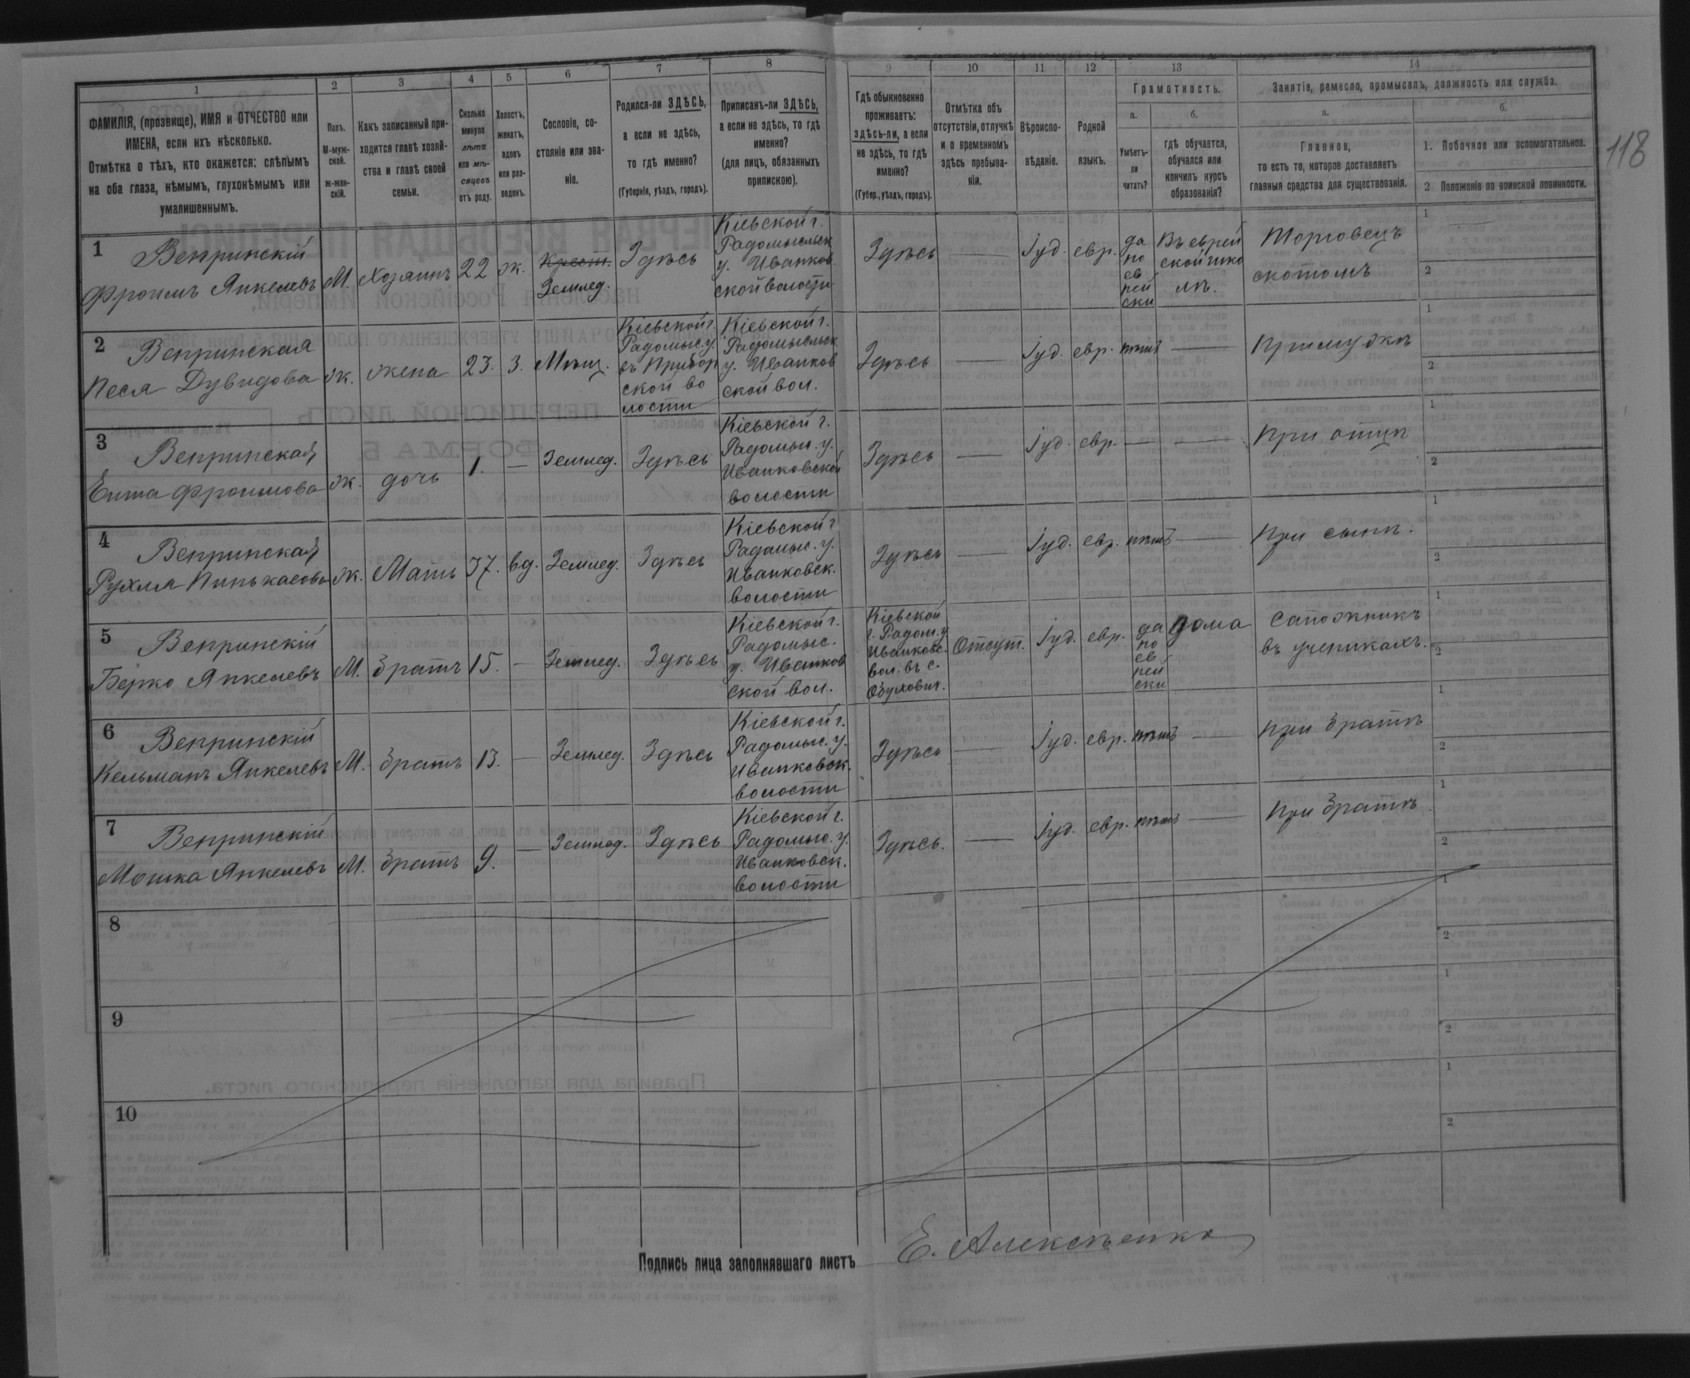 118
1 2 3 4 5 6 7 8 9 10 11 12 13 14
ФАМИЛІЯ, (прозвище), ИМЯ и ОТЧЕСТВО или
ИМЕНА, если ихъ нѣсколько.
Отмѣтка о тѣхъ, кто окажется: слѣпымъ
на оба глаза, нѣмымъ, глухонѣмымъ или
умалишеннымъ.
Полъ.
М-муж-
ской.
ж-жен-
скій.
Какъ записанный при-
ходится главѣ хозяй-
ства и главѣ своей
семьи.
Сколько
минуло
лѣтъ
или мѣ-
сяцевъ
отъ роду.
Холостъ,
женатъ,
вдовъ
или раз-
веденъ.
Сословіе, со-
стояніе или зва-
ніе.
Родился-ли ЗДѢСЬ,
а если не здѣсь,
то гдѣ именно?
(Губернія, уѣздъ, городъ).
Приписанъ-ли ЗДѢСЬ,
а если не здѣсь, то гдѣ
именно?
(для лицъ, обязанныхъ
припискою).
Гдѣ обыкновенно
проживаетъ:
здѣсь-ли, а если
не здѣсь, то гдѣ
именно?
(Губер., уѣздъ, городъ).
Отмѣтка объ
отсутствіи, отлучкѣ
и о временномъ
здѣсь пребыва-
ніи.
Вѣроиспо-
вѣданіе.
Родной
языкъ.
Грамотность.
а.
Умѣетъ-
ли
читать?
б.
гдѣ обучается,
обучался или
кончилъ курсъ
образованія?
Занятіе, ремесло, промыселъ, должность или служба.
а.
Главное,
то есть то, которое доставляетъ
главныя средства для существованія.
б.
1. Побочное или вспомогательное.
2. Положеніе по воинской повинности.
1
Вепринскій
Фроимъ Янкелевъ
М.
Хозяинъ
22
ж.
Крест.
Землед.
Здѣсь
Кіевской г.
Радомысльск
у. Иванков
ской волости
Здѣсь
Іуд.
евр.
да
по
ев
рей
ски
Въ еврей
ской шко
лѣ.
Торговецъ
скотомъ
1
2
2
Вепринская
Песя Дувидова
ж.
жена
23.
З.
Мѣщ.
Кіевской г.
Радомыс. у.
въ Прибор
ской во
лости
Кіевской г.
Радомысльск
у. Иванков
ской вол.
Здѣсь
Іуд.
евр.
нѣтъ
При мужѣ
1
2
3
Вепринская
Ента Фроимова
ж.
дочь
1.
Землед.
Здѣсь
Кіевской г.
Радомыс. у.
Иванковской
волости
Здѣсь
Іуд.
евр.
При отцѣ
1
2
4
Вепринская
Рухля Пинькасова
ж.
Мать
37.
вд.
Землед.
Здѣсь
Кіевской г
Радомыс. у.
Иванковск.
волости
Здѣсь
Іуд.
евр.
нѣтъ
При сынѣ.
1
2
5
Вепринскій
Берко Янкелевъ
М.
братъ
15.
Землед.
Здѣсь
Кіевской г.
Радомыс.
у. Иванков
ской вол.
Кіевской
г. Радом. у
Иванковс.
вол. въ с.
Отсут.
Іуд.
евр.
да
по
ев
рей
ски
дома
Сапожникъ
въ ученикахъ.
1
2
6
Вепринскій
Кельманъ Янкелевъ
М.
братъ
13.
Землед.
Здѣсь
Кіевской г.
Радомыс. у.
Иванковск.
волости
Здѣсь
Іуд.
евр.
нѣтъ
При братѣ
1
2
7
Вепринскій
Мошка Янкелевъ
М.
братъ
9.
Землед.
Здѣсь
Кіевской г.
Радомыс. у.
Иванковск.
волости
Здѣсь.
Іуд.
евр.
нѣтъ
При братѣ
1
2
8
1
2
9
1
2
10
1
2
Подпись лица заполнявшаго листъ
Е. Алексѣенко